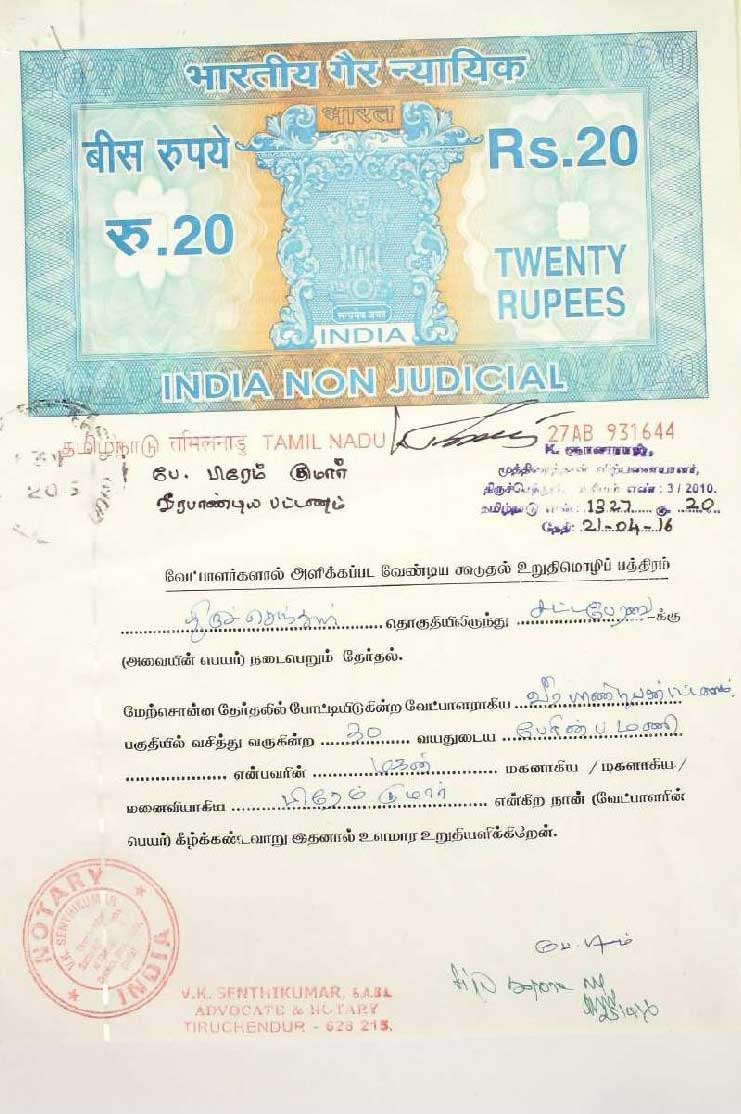 भारतीय गैर न्यायिक
भारत
बीस रुपये
Rs.20
रु.20
TWENTY
RUPEES
सत्यमेव जयते
INDIA
INDIA NON JUDICIAL
தமிழ்நாடு तमिलनाडु TAMIL NADU
27AB 931644
பே. பிரேம் குமார்
வீரபாண்டிய பட்டணம்
எண் : 3 / 2010.
1327 20
தேதி 21-04-16
வேட்பாளர்களால் அளிக்கப்பட வேண்டிய கூடுதல் உறுதிமொழிப் பத்திரம்
திருச்செந்தூர் தொகுதியிலிருந்து சட்டபேரவை -க்கு
(அவையின் பெயர்) நடைபெறும் தேர்தல்.
மேற்சொன்ன தேர்தலில் போட்டியிடுகின்ற வேட்பாளராகிய வீரபாண்டியன்பட்டணம்
பகுதியில் வசித்து வருகின்ற 30 வயதுடைய
என்பவரின் மகன் மகனாகிய / மகளாகிய /
மனைவியாகிய பிரேம் குமார் என்கிற நான் (வேட்பாளரின்
பெயர்) கீழ்க்கண்டவாறு இதனால் உளமார உறுதியளிக்கிறேன்.
NOTARY
V.K. SENTHIKUMAR
INDIA
பே. பிரேம்
V.K. SENTHIKUMAR, B.A.B.L
ADVOCATE & NOTARY
TIRUCHENDUR - 628 215.